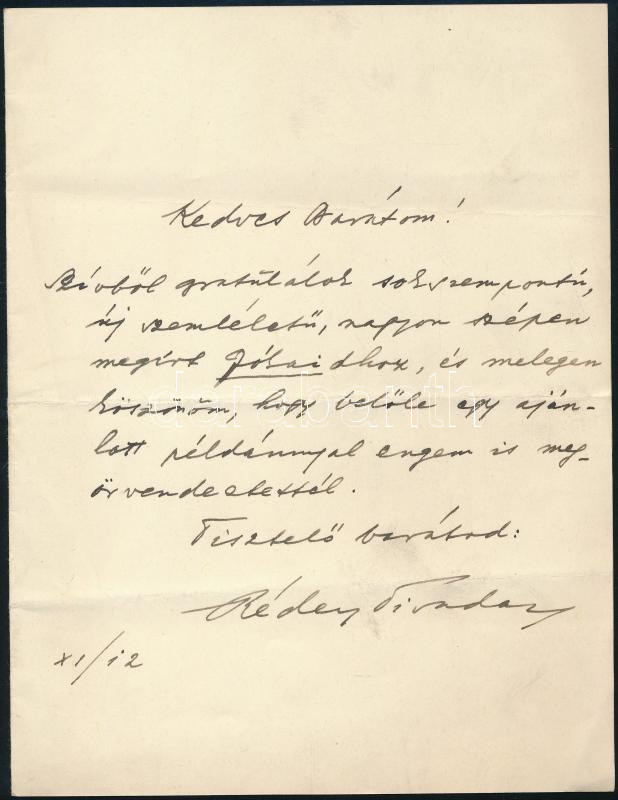 Kedves Barátom!
Szívből gratulálok sokszempontú,
új szemléletű, nagyon szépen
megírt Jókaidhoz, és melegen
köszönöm, hogy belőle egy aján-
lott példánnyal engem is meg-
örvendeztettél.
Tisztelő barátod:
Rédey Tivadar
XI/12
darabanth